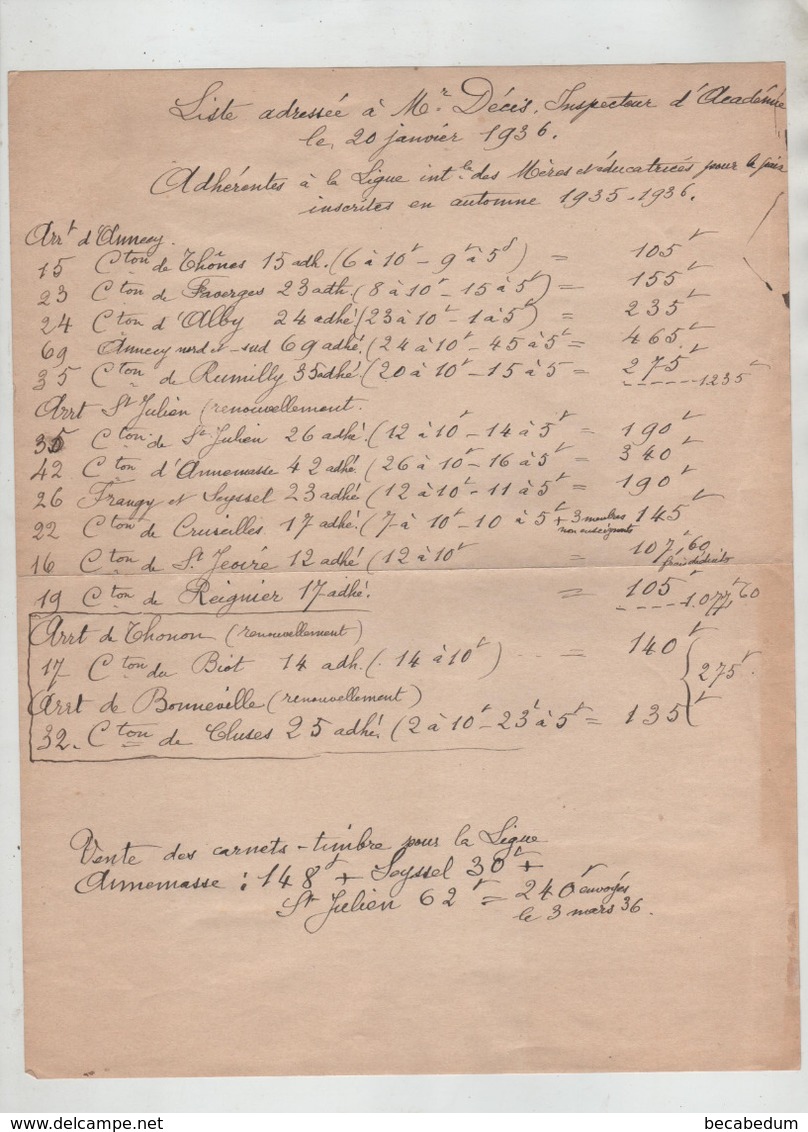 Liste adressée à Mr Décis, Inspecteur d'Académie
le 20 janvier 1936.
Adhérentes à la Ligue intle des Mères et éducatrices pour la paix
inscrites en automne 1935-1936.
Arrt d'Annecy.
15 Cton de Thônes 15 adh. (6 à 10f - 9f à 5f) = 105f
23 Cton de Faverges 23 adh. (8 à 10f - 15 à 5f) = 155f
24 Cton d'Alby 24 adhé (23 à 10f - 1 à 5f) = 235f
69 Annecy nord et sud 69 adhé. (24 à 10f - 45 à 5f = 465f
35 Cton de Rumilly 35 adhé (20 à 10f - 15 à 5 = 275f
------1235f
Arrt St Julien (renouvellement.
35 Cton de St Julien 26 adhé (12 à 10f - 14 à 5f = 190f
42 Cton d'Annemasse 42 adhé. (26 à 10f - 16 à 5f = 340f
26 Frangy et Seyssel 23 adhé (12 à 10f - 11 à 5f = 190f
22 Cton de Cruseilles 17 adhé. (7 à 10f - 10 à 5f + 3 membres 145f
non enseignants
16 Cton de St Jeoire 12 adhé (12 à 10f = 107f,60
frais déduits
19 Cton de Reignier 17 adhé. = 105f
-----1.077f,60
Arrt de Thonon (renouvellement)
17 Cton du Biot 14 adh. (. 14 à 10f) ... = 140f
275f.
Arrt de Bonneville (renouvellement)
32. Cton de Cluses 25 adhé. (2 à 10f - 23f à 5f = 135f
Vente des carnets-timbre pour la Ligue
Annemasse : 148f + Seyssel 30f +
St Julien 62f = 240f envoyés
le 3 mars 36.
becabedum